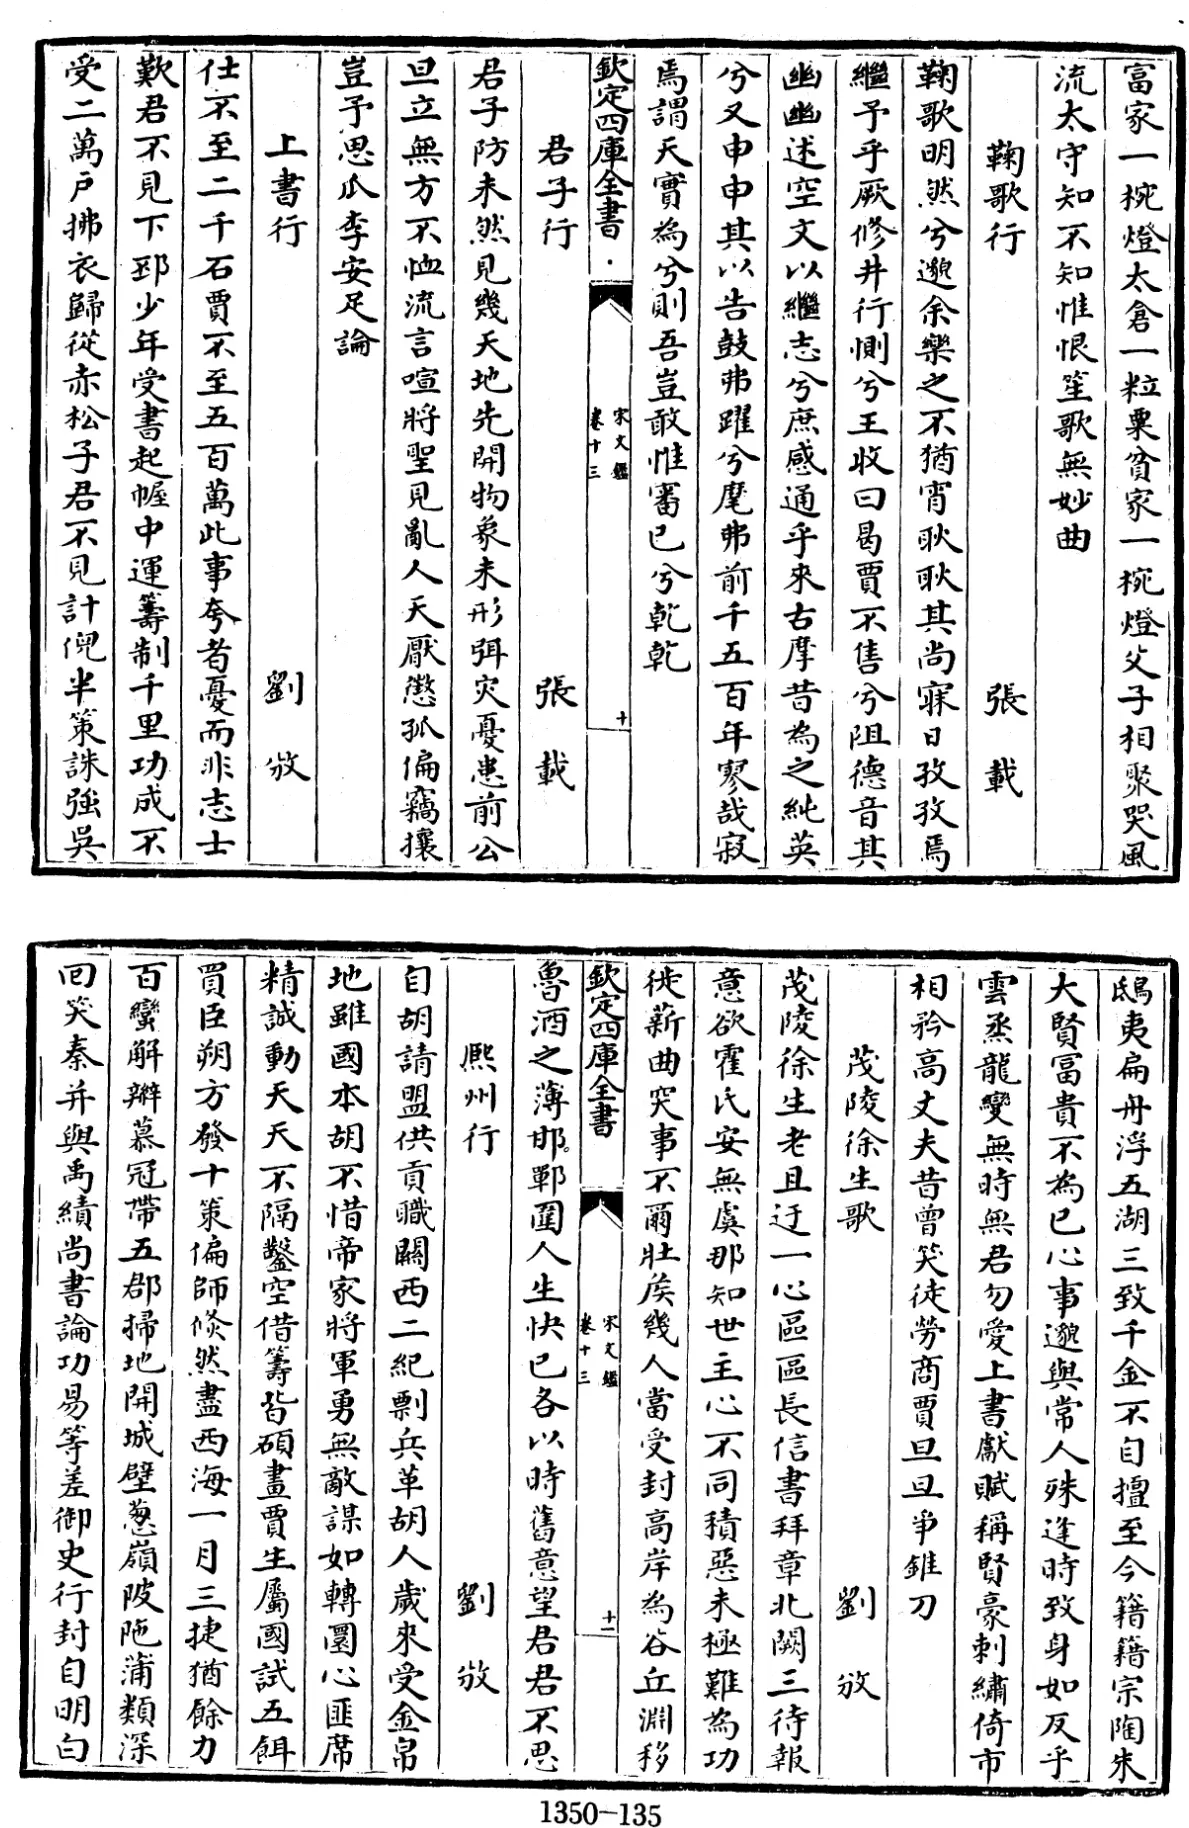 富家一椀燈太倉一粒粟貧家一椀燈父子相聚哭風
流太守知不知惟恨笙歌無妙曲
鞠歌行 張載
鞠歌明然兮邈余樂之不猶宵耿耿其尚寐日孜孜焉
繼予乎厥修井行惻兮王收曰曷賈不售兮阻德音其
幽幽述空文以繼志兮庶感通乎來古摩昔為之純英
兮又申申其以告鼓弗躍兮麾弗前千五百年寥哉寂
焉謂天實為兮則吾豈敢惟審已兮乾乾
欽定四庫全書
宋文鑑
卷十三
十
君子行 張載
君子防未然見幾天地先開物象未形弭灾憂患前公
旦立無方不恤流言喧將聖見亂人天厭懲孤偏竊攘
豈予思瓜李安足論
上書行 劉攽
仕不至二千石賈不至五百萬此事夸者憂而非志士
歎君不見下邳少年受書起幄中運籌制千里功成不
受二萬戸拂衣歸從赤松子君不見計倪半策誅強吳
鴟夷扁舟浮五湖三致千金不自擅至今籍籍宗陶朱
大賢富貴不為已心事邈與常人殊逢時致身如反乎
雲烝龍變無時無君勿愛上書獻賦稱賢豪刺繡倚市
相矜高丈夫昔曾笑徒勞商賈旦旦爭錐刀
茂陵徐生歌 劉攽
茂陵徐生老且迂一心區區長信書拜章北闕三待報
意欲霍氏安無虞那知世主心不同積惡未極難為功
徙薪曲突事不爾壯矦幾人當受封高岸為谷丘淵移
欽定四庫全書
宋文鑑
卷十三
十一
魯酒之薄邯鄲圍人生快已各以時舊意望君君不思
熈州行 劉攽
自胡請盟供貢職關西二紀剽兵革胡人歲來受金帛
地雖國本胡不惜帝家將軍勇無敵謀如轉圜心匪席
精誠動天天不隔鑿空借籌皆碩畫賈生屬國試五餌
買臣朔方發十策偏師倐然盡西海一月三捷猶餘力
百蠻解辮慕冠帶五郡掃地開城壁葱嶺陂陁蒲類深
回笑秦并與禹績尚書論功易等差御史行封自明白
1350-135